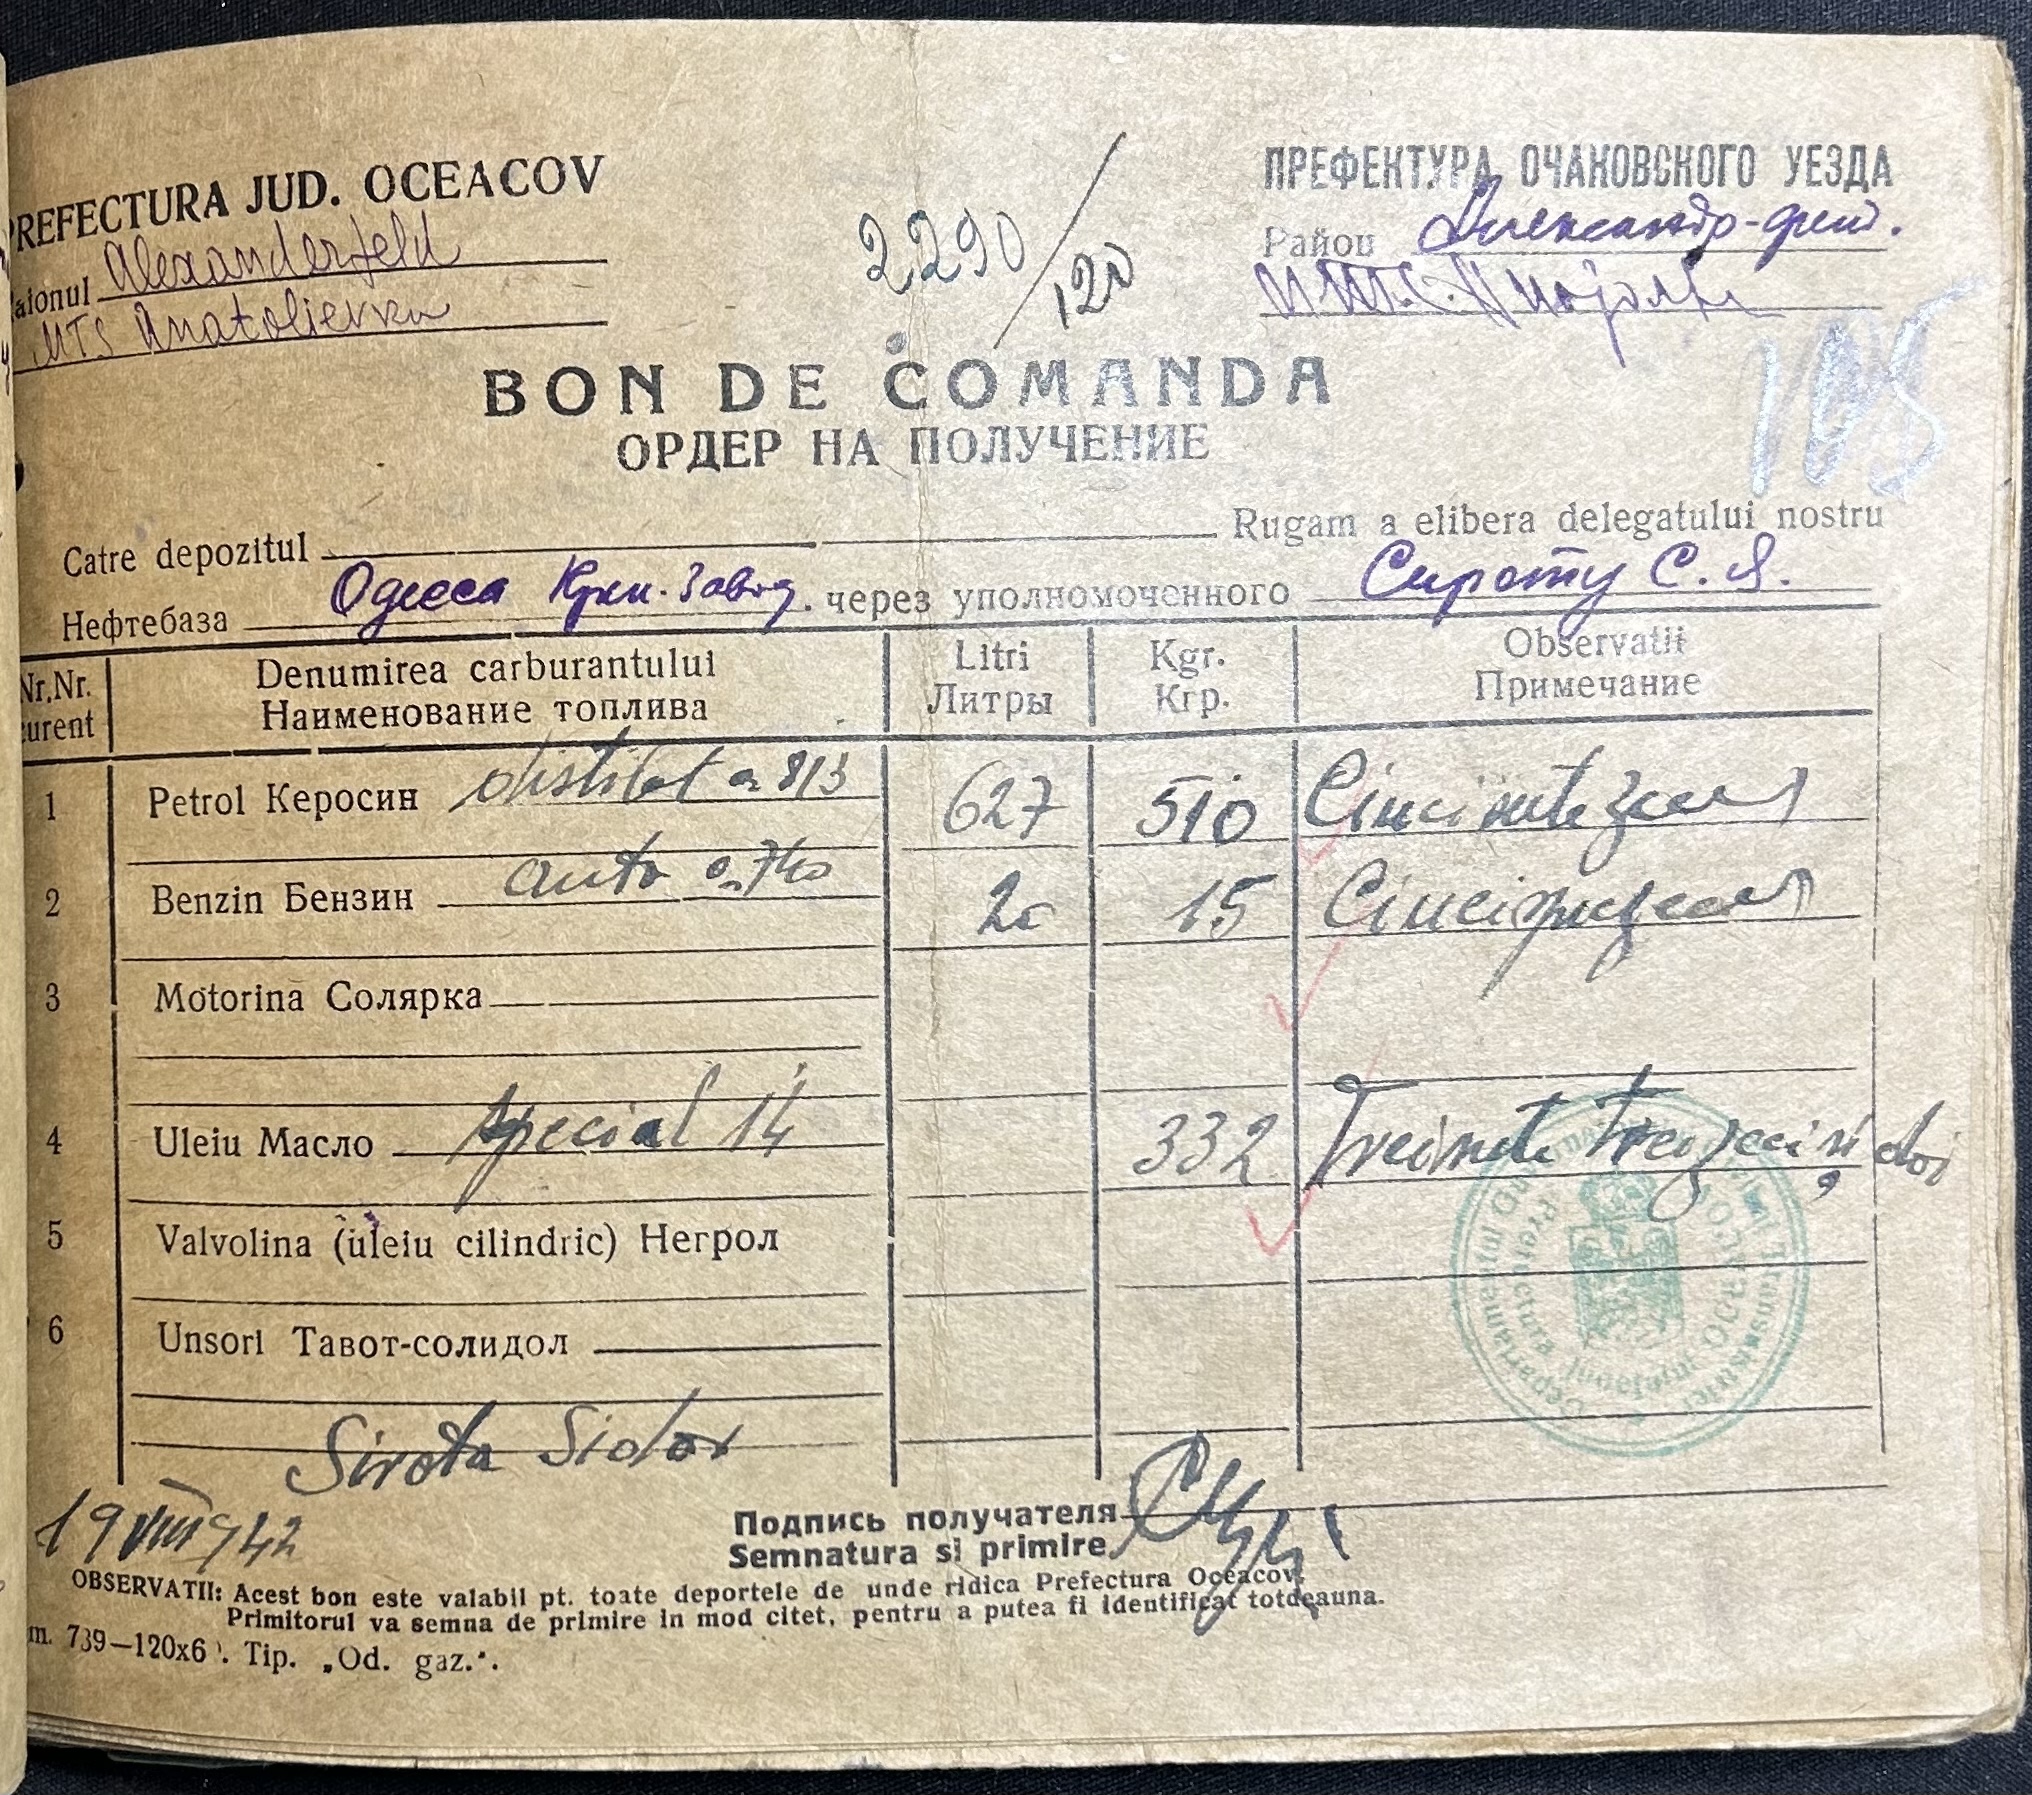 PREFECTURA JUD. OCEACOV
Raionul Alexanderfeld
MTS Anatolievka
2290/120
ПРЕФЕКТУРА ОЧАКОВСКОГО УЕЗДА
Район Александр-фельд.
105
BON DE COMANDA
ОРДЕР НА ПОЛУЧЕНИЕ
Catre depozitul Rugam a elibera delegatului nostru
Нефтебаза Одесса через уполномоченного Сироту С. Я.
Nr.Nr. curent
Denumirea carburantului
Наименование топлива
Litri
Литры
Kgr.
Кгр.
Observatii
Примечание
1 Petrol Керосин distilat 0.813 627 510 Cincisutezece
2 Benzin Бензин auto 0.740 20 15 Cincisprezece
3 Motorina Солярка
4 Uleiu Масло special 14 332 Treisute treizeci și doi
5 Valvolina (uleiu cilindric) Негрол
6 Unsori Тавот-солидол
Sirota Sidor
19 VIII 942
Подпись получателя
Semnatura si primire
OBSERVATII: Acest bon este valabil pt. toate deportele de unde ridica Prefectura Oceacov.
Primitorul va semna de primire in mod citet, pentru a putea fi identificat totdeauna.
m. 739—120x6 . Tip. „Od. gaz.".